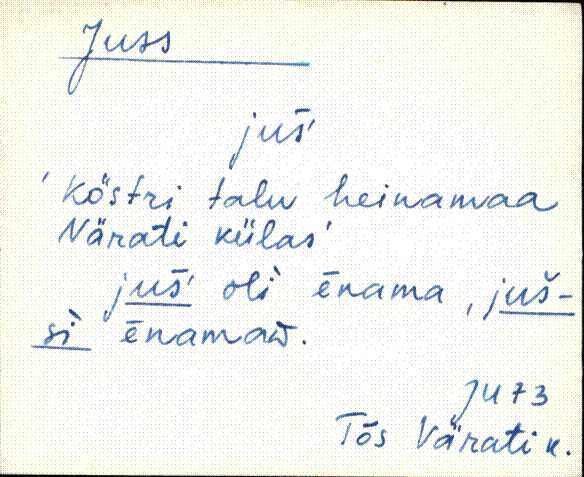 Juss
juš́
'Köstri talu heinamaa
Närati külas'
juš́ oli̬ ēnama, juš-
si̬ ēnamaD.
JU 73
Tõs Värati k.